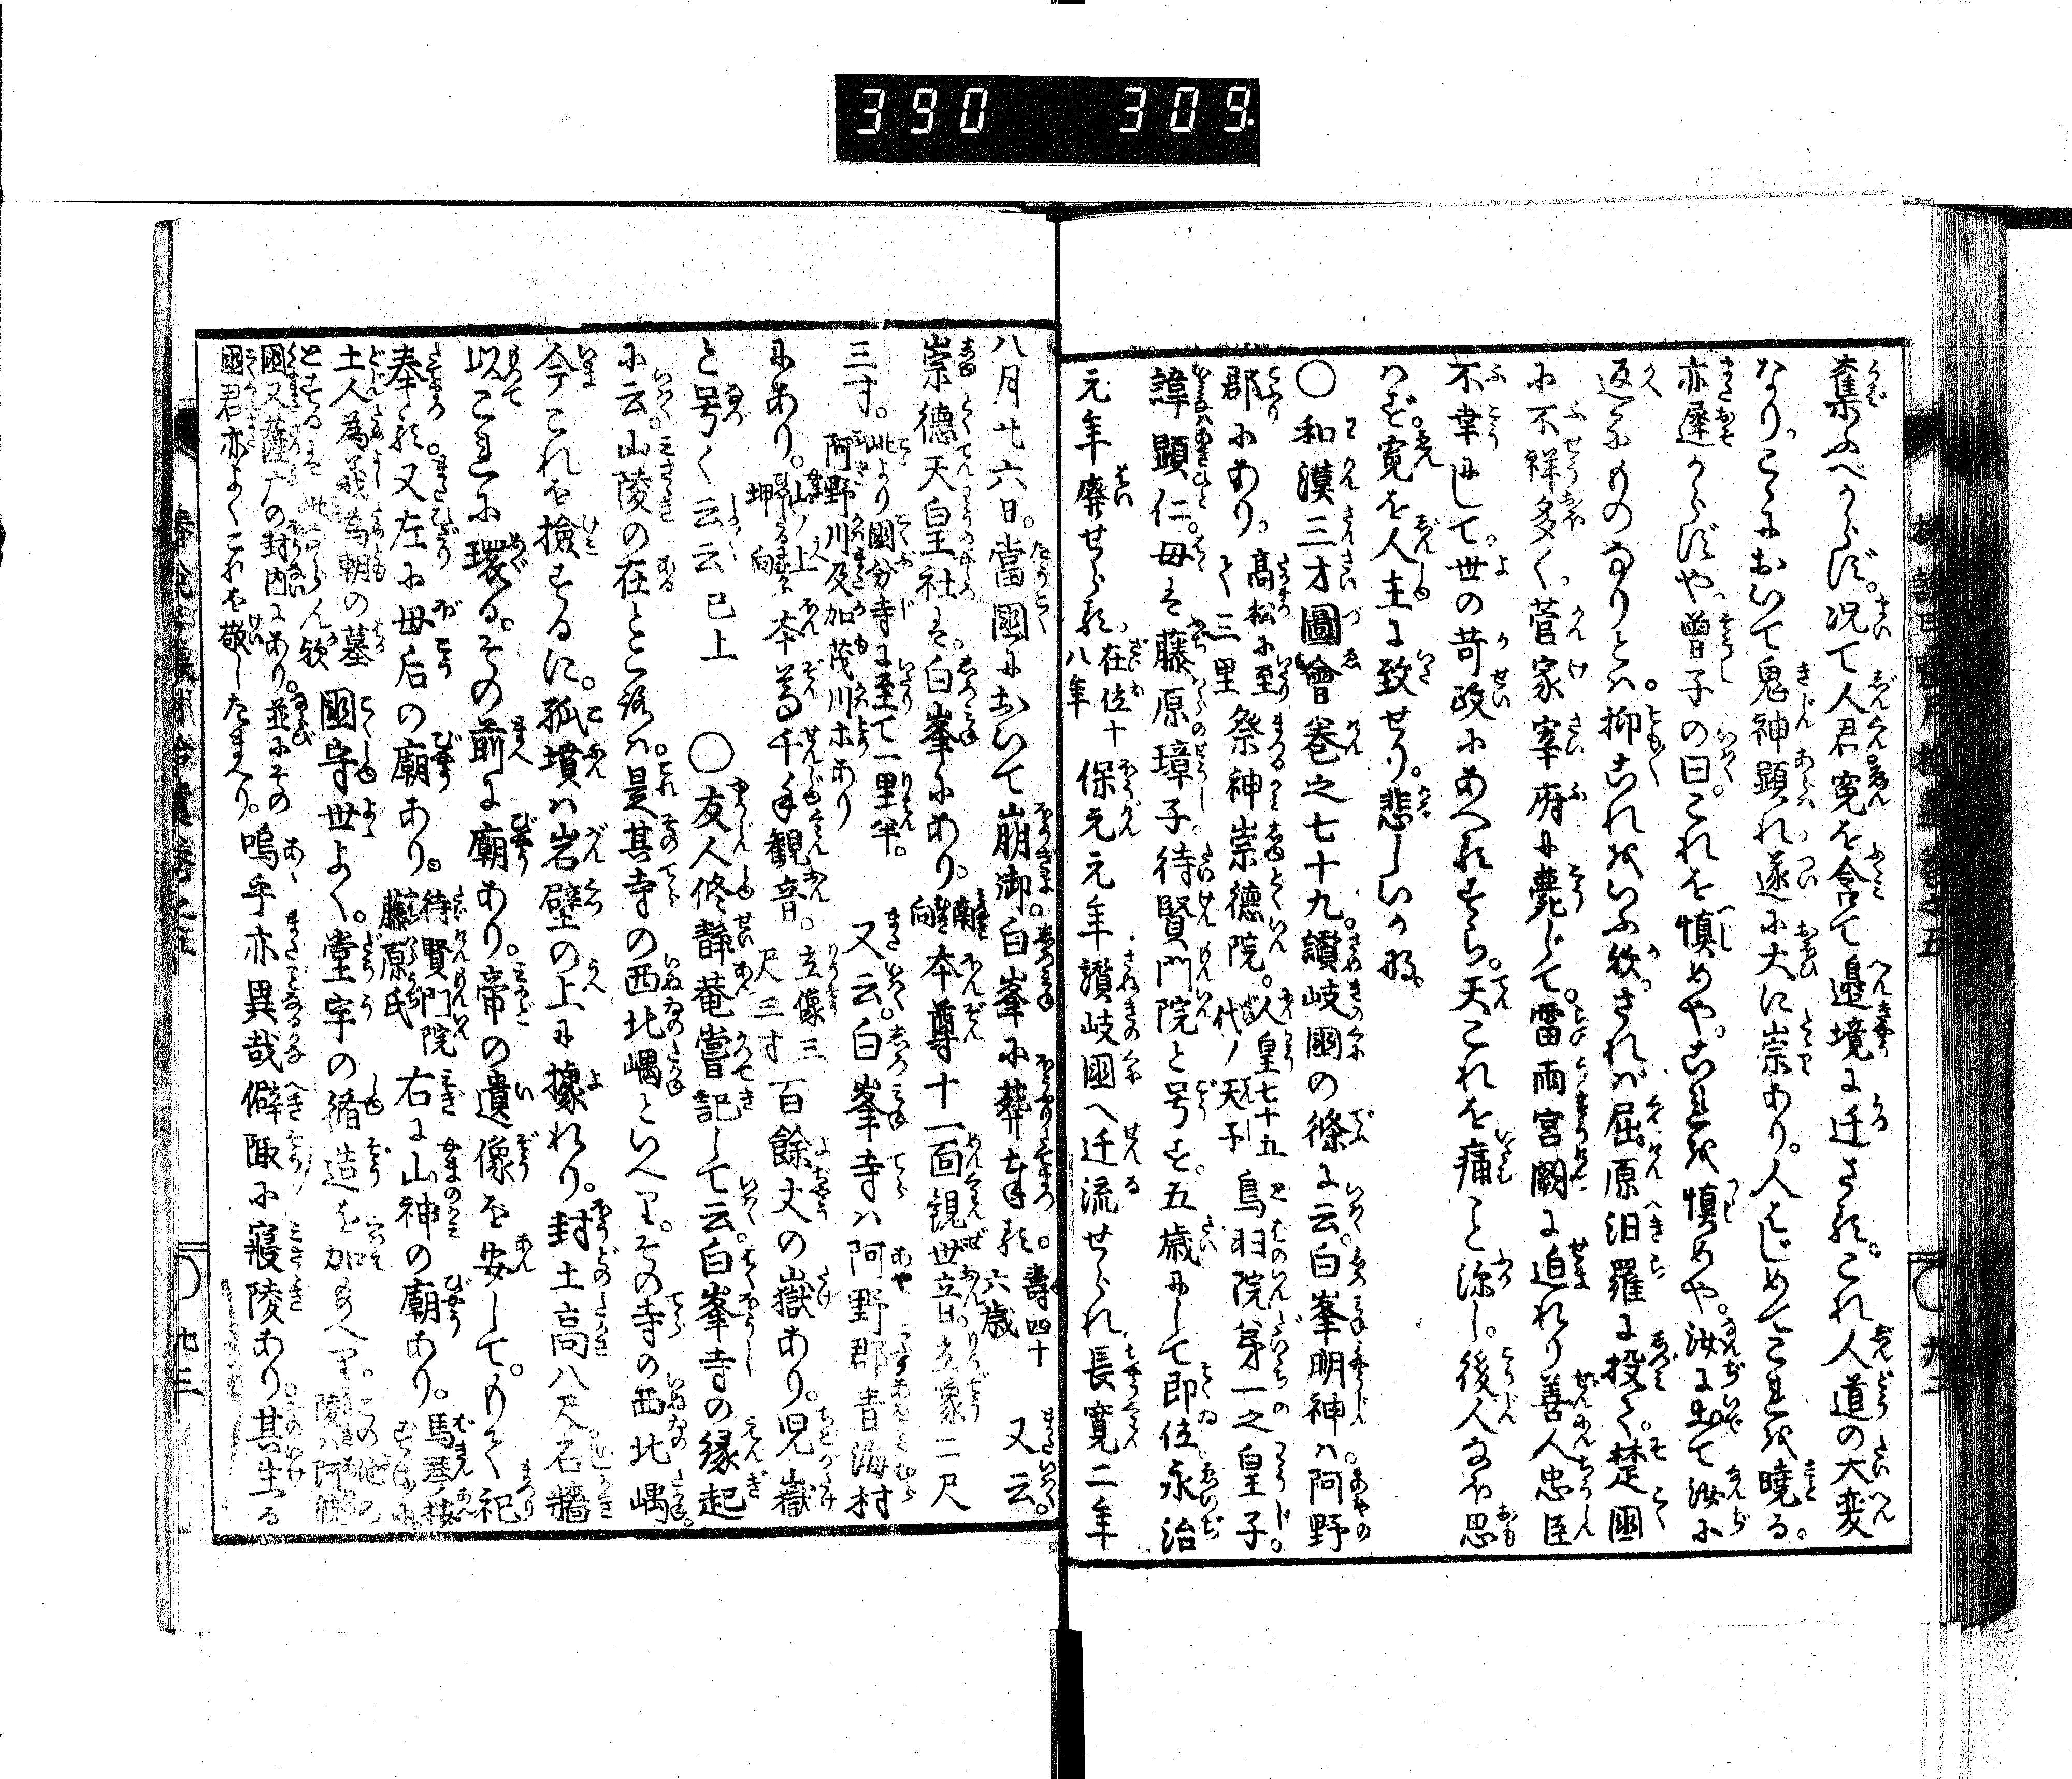 390 309.
奪ふべからず。况て人君寃を含て邉境に迁さる。これ人道の大変
なり。こゝにおいて鬼神顕れ遂に大に崇あり。人はじめてこれを暁る。
亦遅からずや。曽子の曰。これを慎めや。これを慎めや。汝に出て汝に
返るものなりとは。抑これをいふ歟。されば屈原汨羅に投て。楚國
に不祥多く。菅家宰府に薨じて。雷雨宮闕に迫れり善人忠臣
不幸にして世の苛政にあへるすら。天これを痛こと深し。後人なほ思
はず。寃を人主に致せり。悲しいかな。
○和漢三才圖會巻之七十九。讃岐國の條に云。白峯明神は阿野
郡にあり。高松に至て三里祭神崇徳院。人皇七十五代ノ天子鳥羽院第一之皇子。
諱顕仁。母は藤原璋子待賢門院と号す。五歳にして即位永治
元年廃せらる。在位十八年保元元年讃岐國へ迁流せられ長寛二年
八月廿六日。當國において崩御。白峯に葬奉る。壽四十六歳又云。
崇徳天皇社は。白峯にあり。南向本尊十一面観世音。立像二尺
三寸。此より國分寺に至て一里半。阿野川及加茂川ホあり又云。白峯寺は阿野郡青海村
にあり。山ノ上坤向本尊千手観音。立像三尺三寸百餘丈の嶽あり。児嶽
と号く云云已上○友人修静菴嘗記して云。白峯寺の縁起
に云。山陵の在ところは。是其寺の西北嵎といへり。その寺の西北嵎
今これを撿するに。孤墳は岩壁の上に據れり。封土高八尺石牆
以これに環る。その前に廟あり。帝の遺像を安して。もて祀
奉る。又左に母后の廟あり。待賢門院藤原氏右に山神の廟あり。馬琴按
土人為義為朝の墓とするは此ならん歟國守世よく。堂宇の脩造を加
國又薩广の封内にあり。並にその國君亦よくこれを敬したまへり。嗚乎亦異哉僻陬に寢陵あり其生る
九二
九三